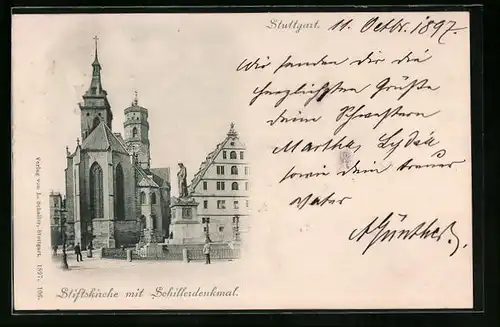 Stuttgart. 11. Octbr. 1897.
Wir senden dir die
herzlichsten Grüße
deine Schwestern
Martha, Lydia
sowie dein treuer
Vater
A Günther.
Stiftskirche mit Schillerdenkmal.
Verlag von Lo. Schaller, Stuttgart. 1897. 106.